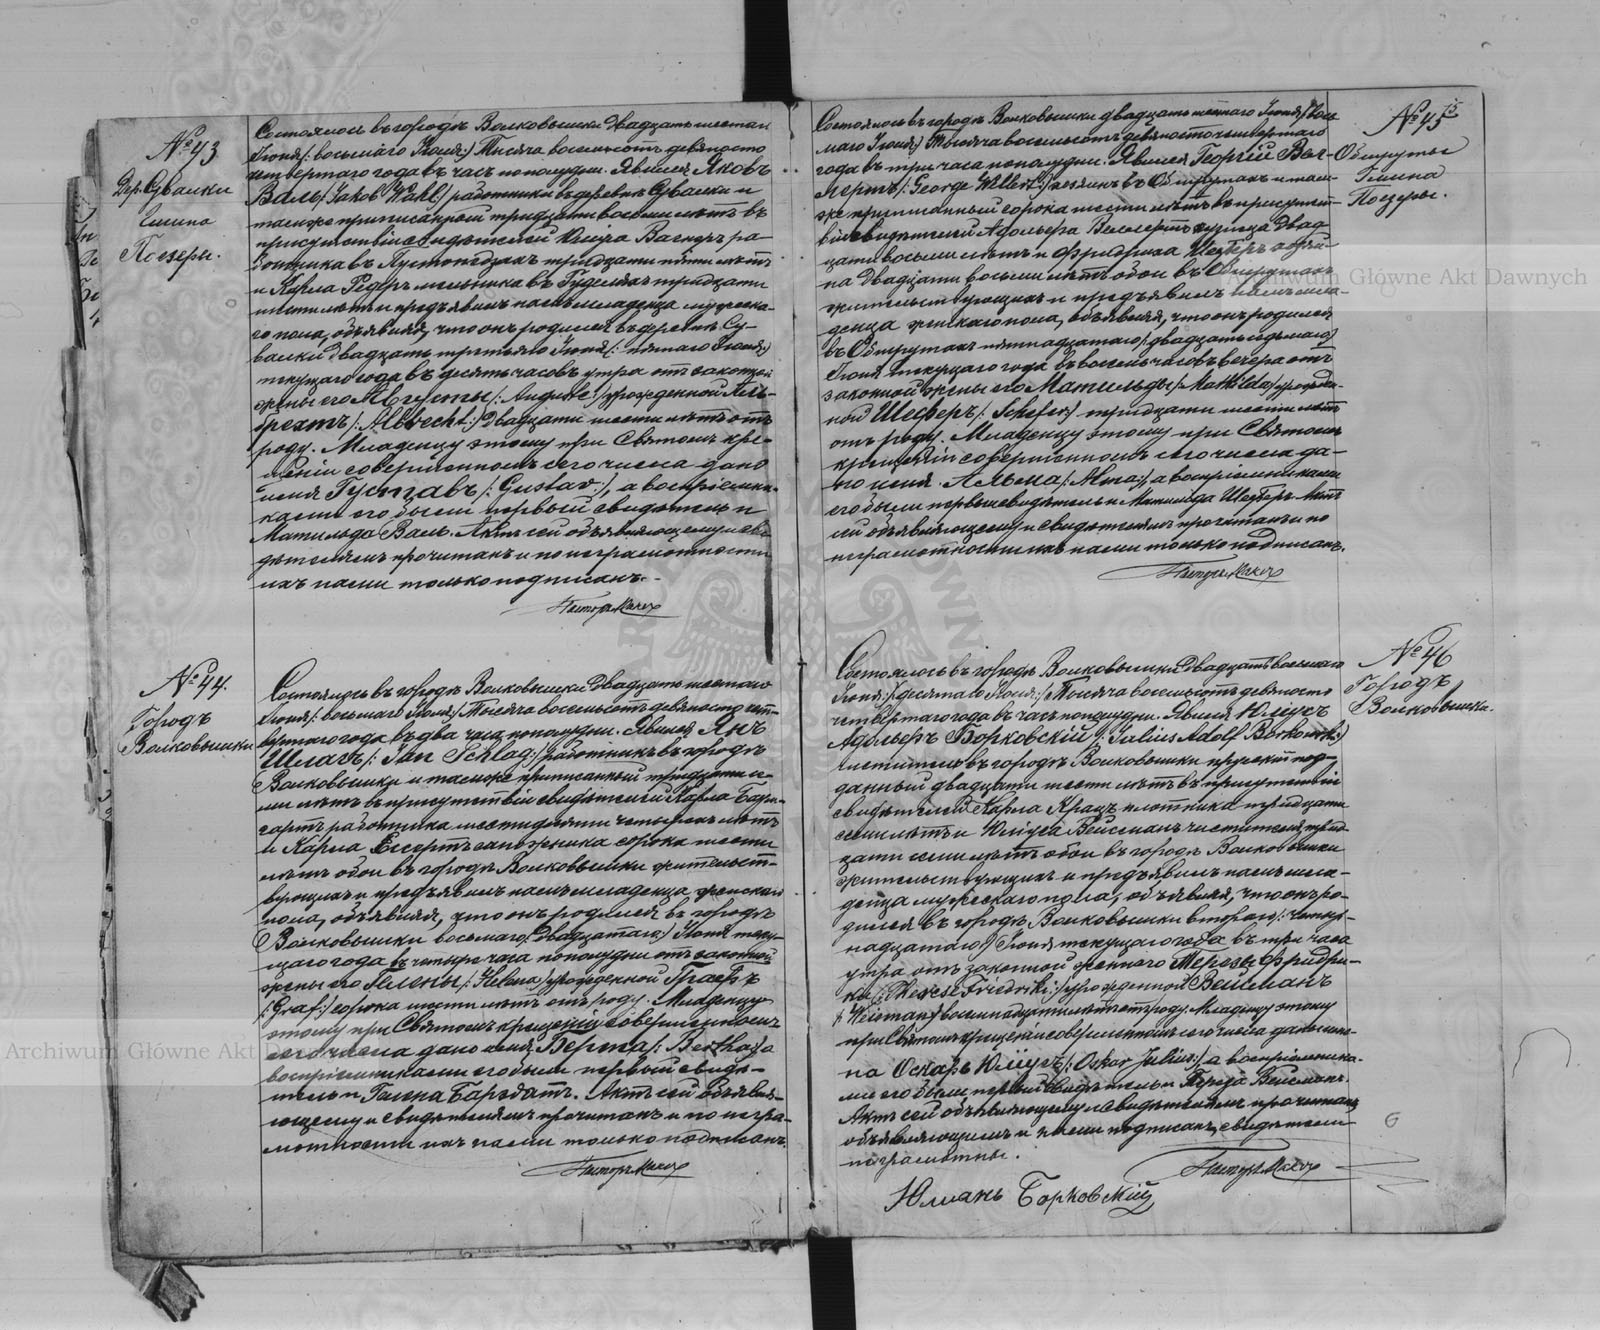 № 43
Дер. Сувалки
Гмина
Поезеры.
Состоялось въ городѣ Волковышки двадцать шестаго
Іюня /: восьмаго Іюля :/ Тысяча восемьсотъ девяносто
четвертаго года въ часъ пополудни. Явился Яковъ
Валь /: Jakob Wahl :/ работникъ въ деревнѣ Сувалки и
тамже приписанный тридцати восьми лѣтъ въ
присутствіи свидѣтелей Юліуса Вагнеръ ра-
ботника въ Пустопедзахъ тридцати пяти лѣтъ
и Карла Редеръ мельника въ Гуделяхъ тридцати
шести лѣтъ и предъявилъ намъ младенца мужеска-
го пола, объявляя, что онъ родился въ деревнѣ Су-
валки двадцать третьяго Іюня /: пятаго Іюля :/
текущаго года въ десять часовъ утра отъ законной
жены его Августы /: Auguste :/ урожденной Аль-
брехтъ /: Albrecht :/ двадцати шести лѣтъ отъ
роду. Младенцу этому при Святомъ кре-
щеніи совершенномъ сего числа дано
имя Густавъ /: Gustav :/, а воспріемни-
ками его были первый свидѣтель и
Матильда Валь. Актъ сей объявляющему и сви-
дѣтелямъ прочитанъ и по неграмотности
ихъ нами только подписанъ. -
Пасторъ
№ 44.
Городъ
Волковышки
Состоялось въ городѣ Волковышки двадцать шестаго
Іюня /: восьмаго Іюля :/ Тысяча восемьсотъ девяносто чет-
вертаго года въ два часа пополудни. Явился Янъ
Шлагъ /: Jan Schlag :/ работникъ въ городѣ
Волковышки и тамже приписанный тридцати се-
ми лѣтъ въ присутствіи свидѣтелей Карла
работника шестидесяти четырехъ лѣтъ
и Карла Енсертъ сапожника сорока шести
лѣтъ обои въ городѣ Волковышки жительст-
вующихъ и предъявилъ намъ младенца женскаго
пола, объявляя, что онъ родился въ городѣ
Волковышки восьмаго /: двадцатаго :/ Іюня теку-
щаго года въ четыре часа пополудни отъ законной
жены его Гелены /: Helena :/ урожденной Графъ
/: Graf :/ сорока шести лѣтъ отъ роду. Младенцу
этому при Святомъ крещеніи совершенномъ
сего числа дано имя Берта /: Bertha :/, а
воспріемниками его были первый свидѣ-
тель и Ганна. Актъ сей объявля-
ющему и свидѣтелямъ прочитанъ и по негра-
мотности ихъ нами только подписанъ.
Пасторъ
№ 45
Обшруты
Гмина
Поезеры.
Состоялось въ городѣ Волковышки двадцать шестаго Іюня /: вось-
маго Іюля :/ Тысяча восемьсотъ девяносто четвертаго
года въ три часа пополудни. Явился Георгій Вел-
лертъ /: George Wellert :/ хозяинъ въ Обшрутахъ и там-
же приписанный сорока шести лѣтъ въ присутст-
віи свидѣтелей Адольфа Веллертъ кузнеца двад-
цати восьми лѣтъ и Фридриха Шеферъ
двадцати восьми лѣтъ обои въ Обшрутахъ
жительствующихъ и предъявилъ намъ мла-
денца женскаго пола, объявляя, что онъ родился
въ Обшрутахъ пятнадцатаго /: двадцать седьмаго :/
Іюня текущаго года въ восемь часовъ вечера отъ
законной жены его Матильды /: Mathilda :/ урожден-
ной Шеферъ /: Schefer :/ тридцати шести лѣтъ
отъ роду. Младенцу этому при Святомъ
крещеніи совершенномъ сего числа да-
но имя Альма /: Alma :/, а воспріемниками
его были первый свидѣтель и Матильда Шеферъ. Актъ
сей объявляющему и свидѣтелямъ прочитанъ и по
неграмотности ихъ нами только подписанъ.
Пасторъ
№ 46
Городъ
Волковышки.
Состоялось въ городѣ Волковышки двадцать восьмаго
Іюня /: десятаго Іюля :/ Тысяча восемьсотъ девяносто
четвертаго года въ часъ пополудни. Явился Юліусъ
Адольфъ Борковскій /: Julius Adolf Borkowski :/
чиститель въ городѣ Волковышки прускій под-
данный двадцати шести лѣтъ въ присутствіи
свидѣтелей Карла Крацъ плотника тридцати
семи лѣтъ и Юліуса Вейсманъ чистителя, трид-
цати семи лѣтъ обои въ городѣ Волковышки
жительствующихъ и предъявилъ намъ мла-
денца мужескаго пола, объявляя, что онъ ро-
дился въ городѣ Волковышки втораго /: четыр-
надцатаго :/ Іюня текущаго года въ три часа
утра отъ законной жены его Терезы Фридри-
ки /: Therese Friedrike :/ урожденной Вейсманъ
/: Weisman :/ лѣтъ отъ роду. Младенцу этому
при Святомъ крещеніи совершенномъ сего числа даны име-
на Оскаръ Юліусъ /: Oskar Julius :/, а воспріемника-
ми его были первый свидѣтель и Вейсманъ.
Актъ сей объявляющему и свидѣтелямъ прочитанъ,
объявляющимъ и нами подписанъ, свидѣтели
неграмотны.
Пасторъ
Борковскій
Archiwum Główne Akt Dawnych
Archiwum Główne Akt Dawnych